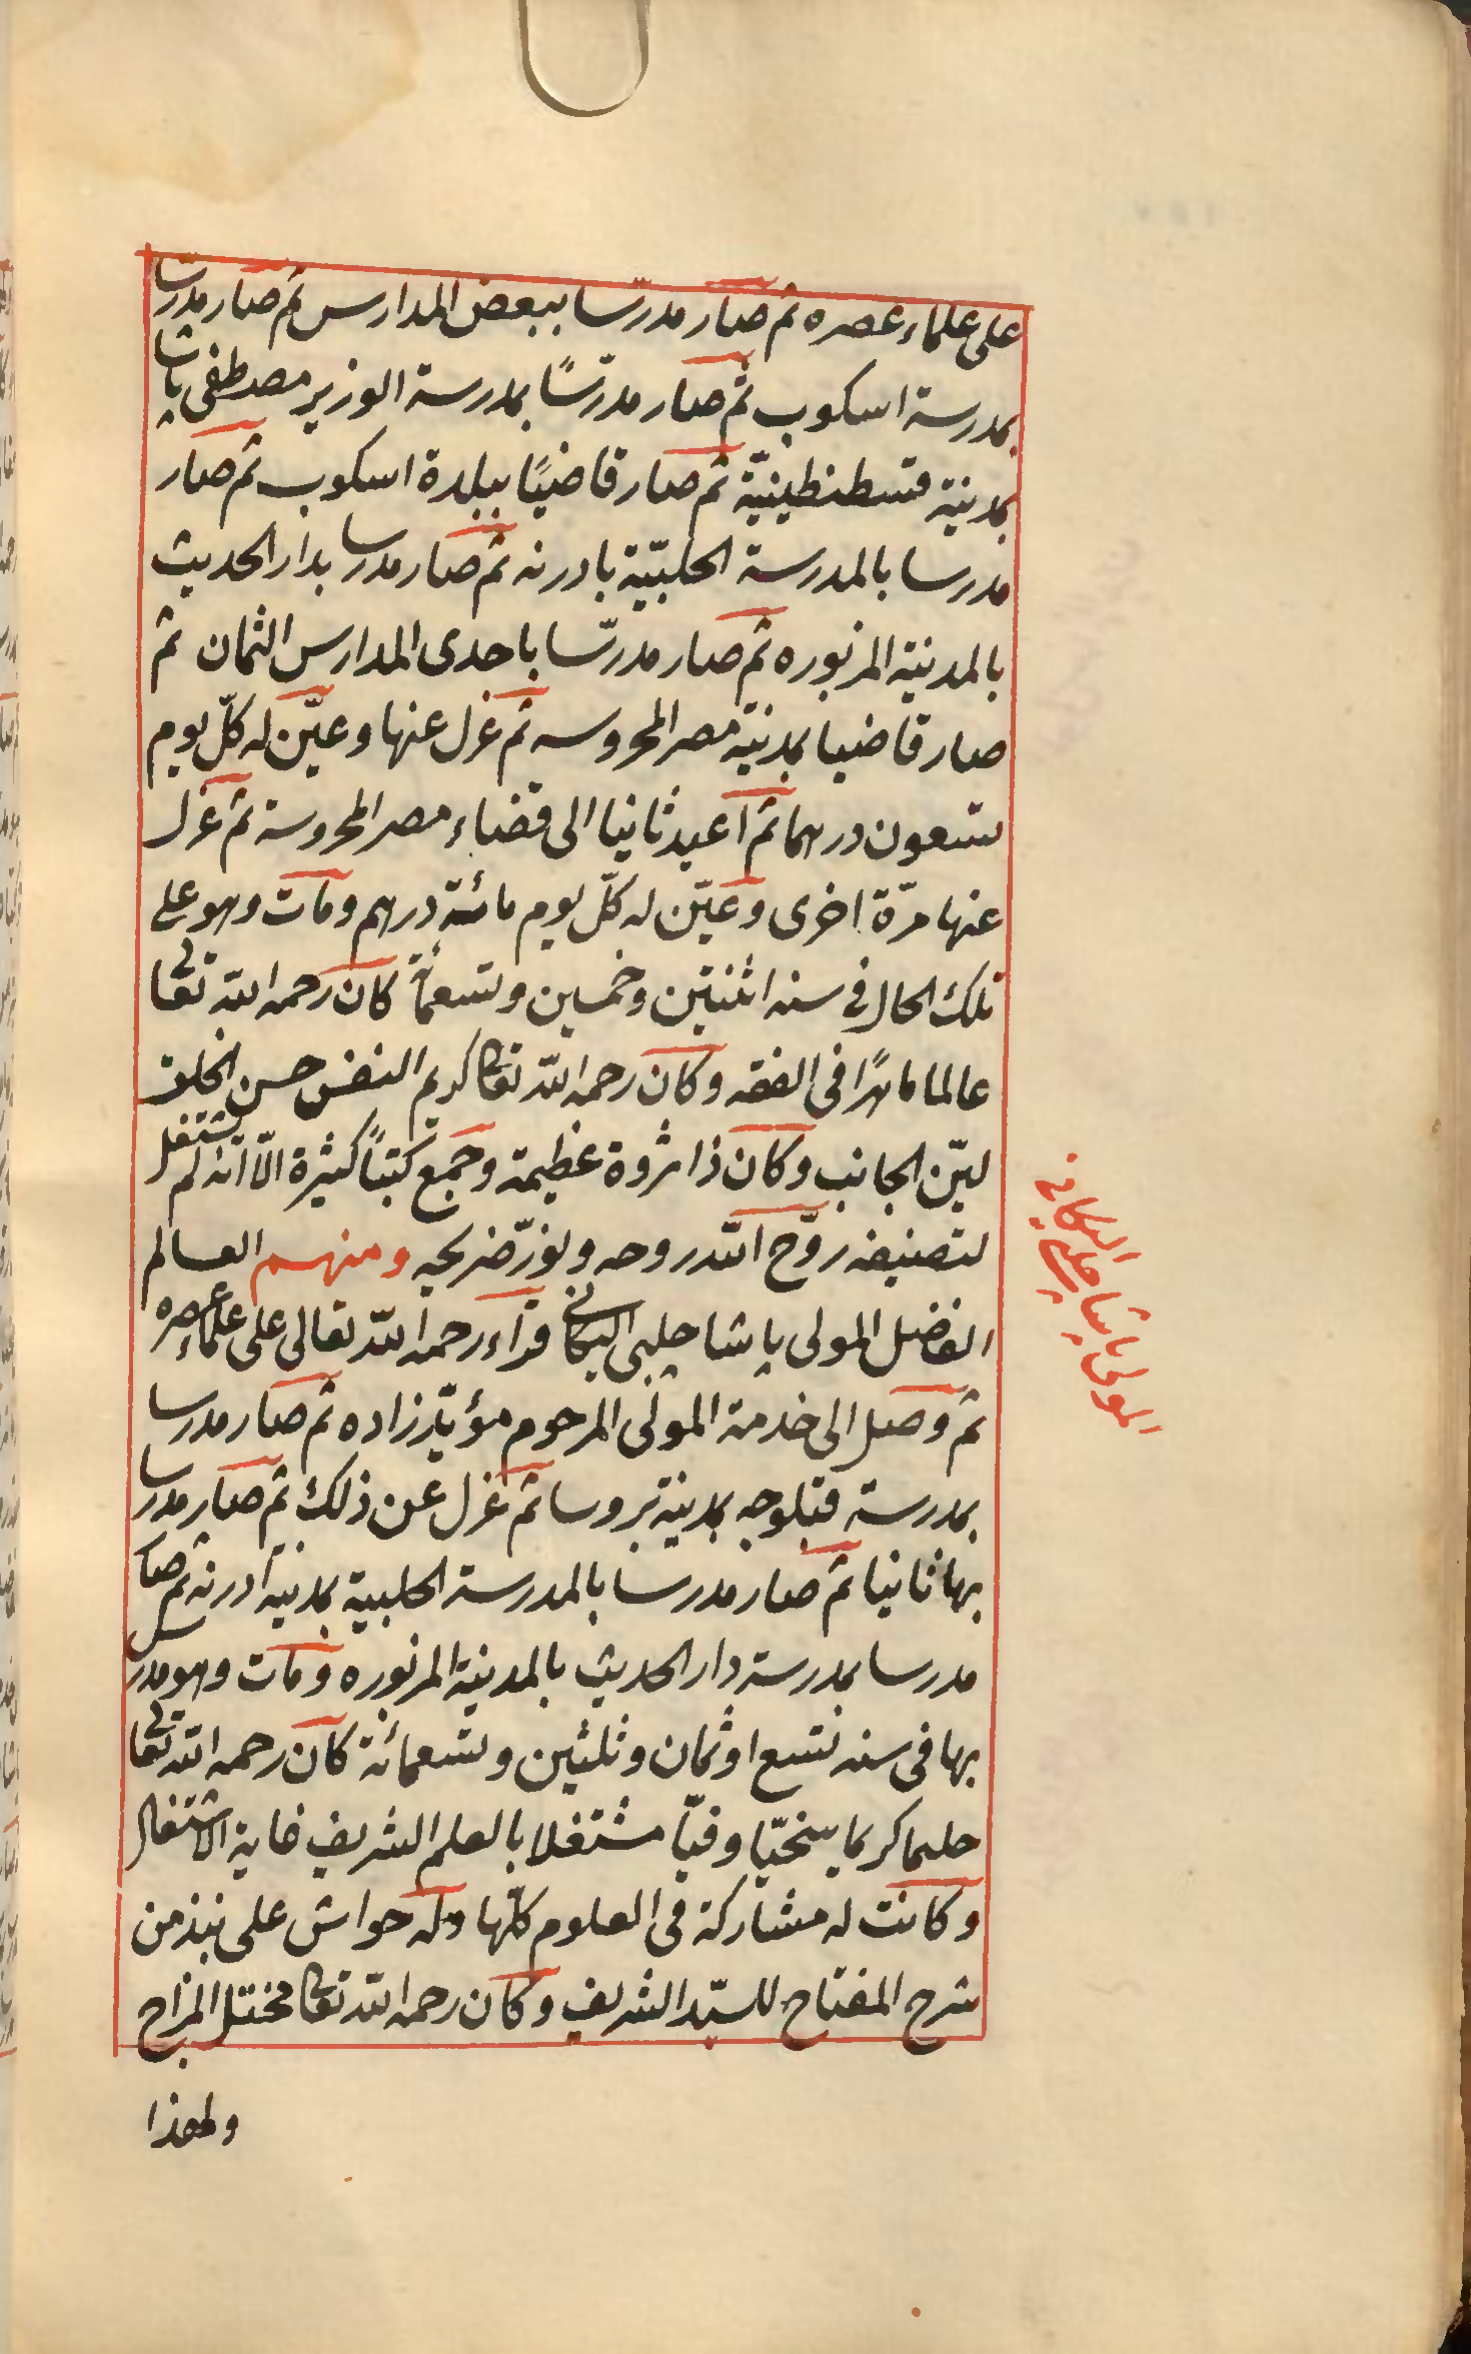 على علماء عصره ثم صار مدرّسا ببعض المدارس ثم صار مدرسا
بمدرسة اسكوب ثم صار مدرّسًا بمدرسة الوزير مصطفى پاشا
بمدينة قسطنطينيّة ثم صار قاضيًا ببلدة اسكوب ثم صار
مدرسا بالمدرسة الحلبيّة بادرنه ثم صار مدرسا بدار الحديث
بالمدينة المزبوره ثم صار مدرّسا باحدى المدارس الثمان ثم
صار قاضيا بمدينة مصر المحروسه ثم عزل عنها وعيّن له كلّ يوم
تسعون درهما ثم اعيد ثانيا الى قضاء مصر المحروسة ثم عزل
عنها مرّة اخرى وعيّن له كلّ يوم مائة درهم ومات وهو على
تلك الحال في سنه اثنتين وخمسين وتسعمائة كان رحمه الله تعالى
عالما ماهرًا في الفقه وكان رحمه الله تعالى كريم النفس حسن الخلق
ليّن الجانب وكان ذا ثروة عظيمة وجمع كتبًا كثيرة الّا انه لم يشتغل
لتصنيفه روّح الله روحه ونوّر ضريحه ومنهم العالم
الفاضل المولى پاشا چلبى اليكانى قراء رحمه الله تعالى على علماء عصره
ثم وصل الى خدمة المولى المرحوم مؤيّد زاده ثم صار مدرسا
بمدرسة قبلوجه بمدينة بروسا ثم عزل عن ذلك ثم صار مدرسا
بها ثانيا ثم صار مدرسا بالمدرسة الحلبية بمدينة ادرنه ثم صار
مدرسا بمدرسة دار الحديث بالمدينة المزبوره ومات وهو مدرس
بها في سنه تسع او ثمان وثلثين وتسعمائة كان رحمه الله تعالى
حليما كريما سخيّا وفيّا مشتغلا بالعلم الشريف غاية الاشتغال
وكانت له مشاركة في العلوم كلّها وله حواش على نبذ من
شرح المفتاح للسيّد الشريف وكان رحمه الله تعالى مختل المزاج
ولهذا
المولى پاشا چلبى
اليكانى